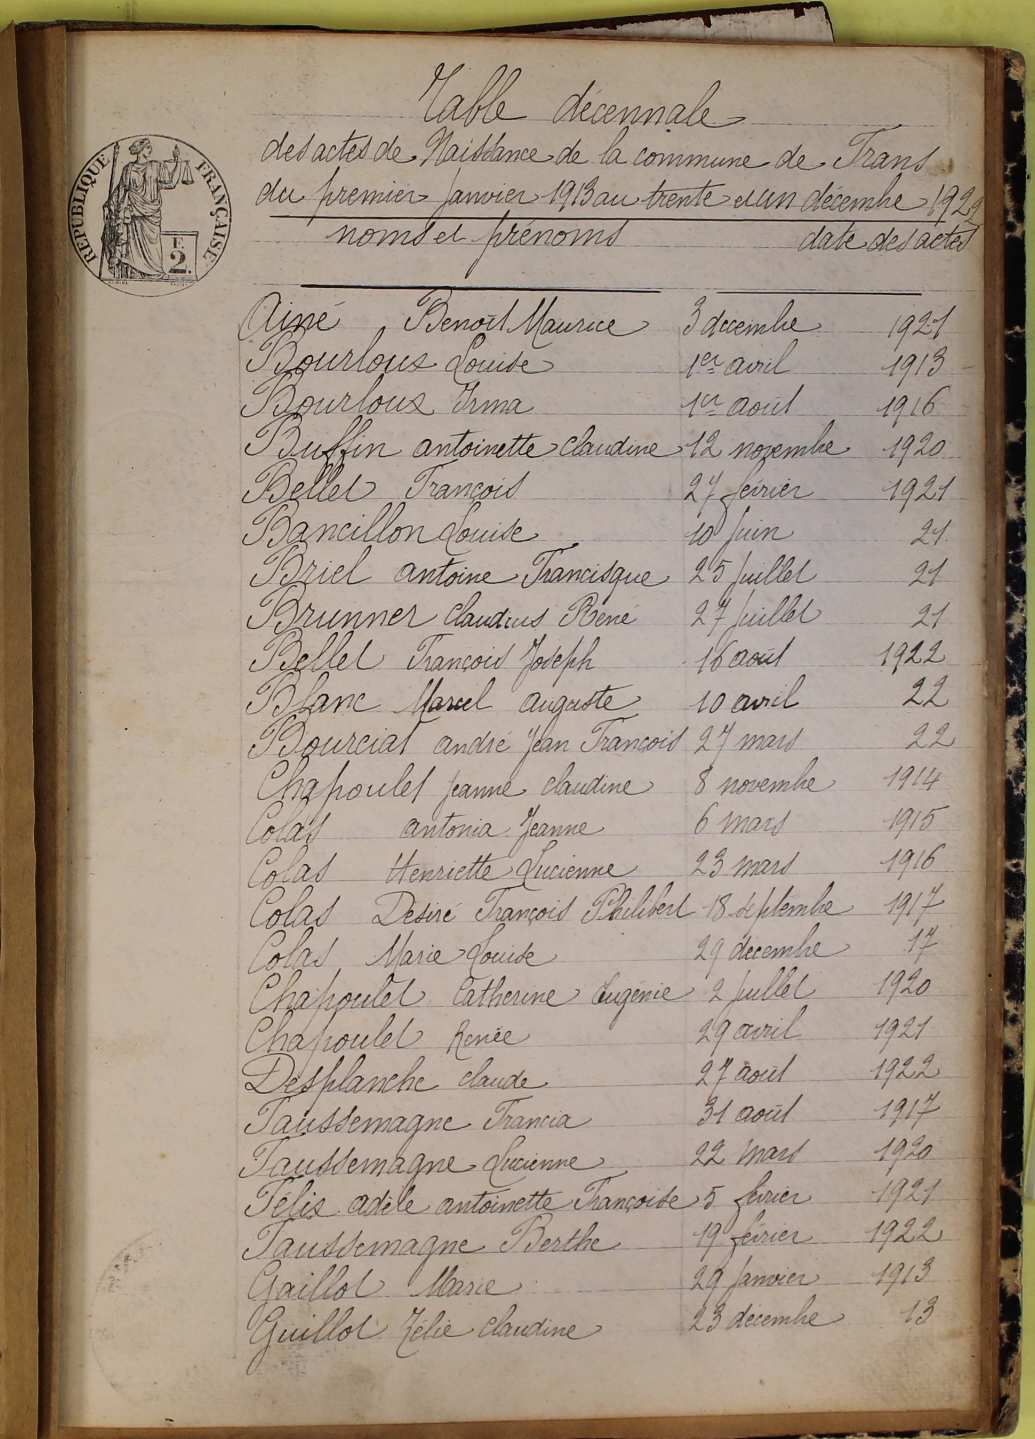 Table décennale
des actes de Naissance de la commune de Trans
du premier Janvier 1913 au trente et un décembre 1922
RÉPUBLIQUE FRANÇAISE
F.
2.
noms et prénoms date des actes
Ainé Benoît Maurice 3 décembre 1921
Bourloux Louise 1er avril 1913
Bourloux Irma 1er août 1916
Buffin antoinette claudine 12 novembre 1920
Bellet François 27 février 1921
Bancillon Louise 10 Juin 21
Briel antoine Francisque 25 Juillet 21
Brunner claudius René 27 Juillet 21
Bellet François Joseph 16 août 1922
Blanc Marcel auguste 10 avril 22
Bourciat andré Jean François 27 mars 22
Chapoulet Jeanne claudine 8 novembre 1914
Colas antonia Jeanne 6 mars 1915
Colas Henriette Lucienne 23 mars 1916
Colas Désiré François Philibert 18 septembre 1917
Colas Marie Louise 29 décembre 17
Chapoulet Catherine Eugénie 2 Juillet 1920
Chapoulet Renée 29 avril 1921
Desplanche claude 27 août 1922
Faussemagne Francia 31 août 1917
Faussemagne Lucienne 22 mars 1920
Félix adèle antoinette Françoise 5 février 1921
Faussemagne Berthe 19 février 1922
Gaillot Marie 29 Janvier 1913
Guillot Zélie claudine 23 décembre 13